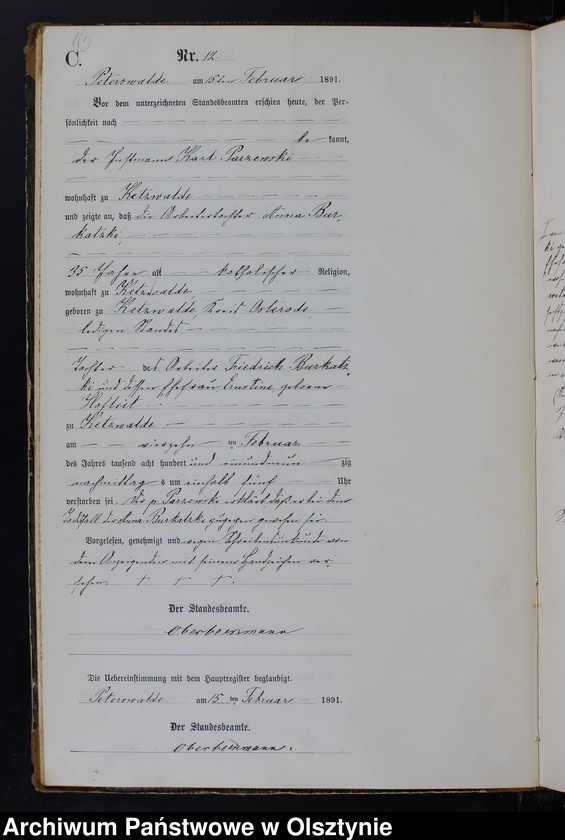 C.
Nr. 12.
Peterswalde am 15ten Februar 1891.
Vor dem unterzeichneten Standesbeamten erschien heute, der Per-
sönlichkeit nach
be kannt,
der Instmann Karl Parzewski
wohnhaft zu Ketzwalde
und zeigte an, daß die Arbeitertochter Anna Bur-
katzki,
35 Jahre alt katholischer Religion,
wohnhaft zu Ketzwalde
geboren zu Ketzwalde, Kreis Osterode
ledigen Standes
Tochter des Arbeiter Friedrich Burkatz-
ki und dessen Ehefrau Ernstine geborene
zu Ketzwalde
am vierzehn ten Februar
des Jahres tausend acht hundert und einundneun zig
nachmittag s um einhalb fünf Uhr
verstorben sei. Der p. Parzewski erklärt daß er bei dem
Todesfall der Anna Burkatzki zugegen gewesen sei.
Vorgelesen, genehmigt und wegen Schreibensunkunde von
dem Anzeigenden mit seinem Handzeichen ver-
sehen. + + +.
Der Standesbeamte.
Die Uebereinstimmung mit dem Hauptregister beglaubigt.
Peterswalde am 15 ten Februar 1891.
Der Standesbeamte.
Archiwum Państwowe w Olsztynie